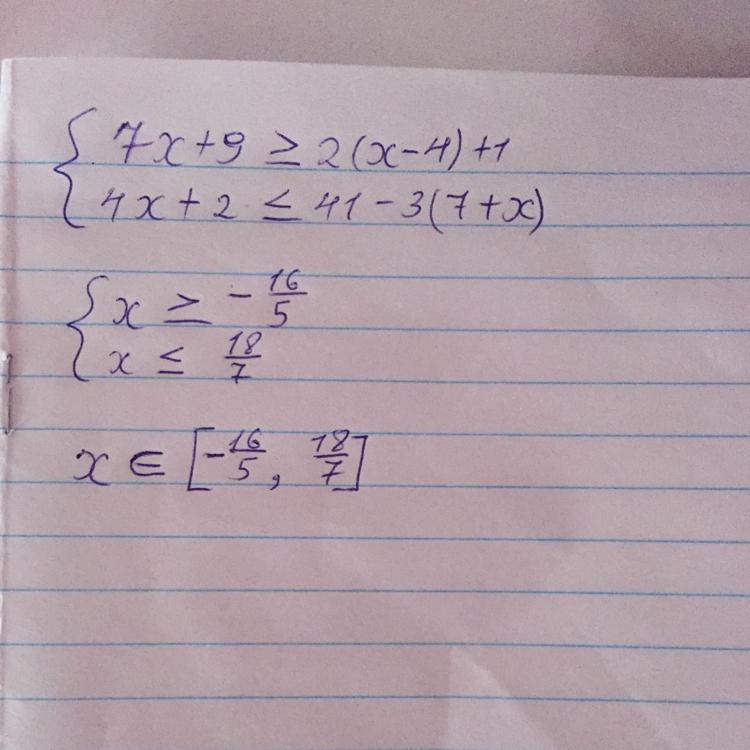 7x+9 ≥ 2(x-4)+1
4x+2 ≤ 41-3(7+x)
x ≥ -16/5
x ≤ 18/7
x ∈ [-16/5, 18/7]